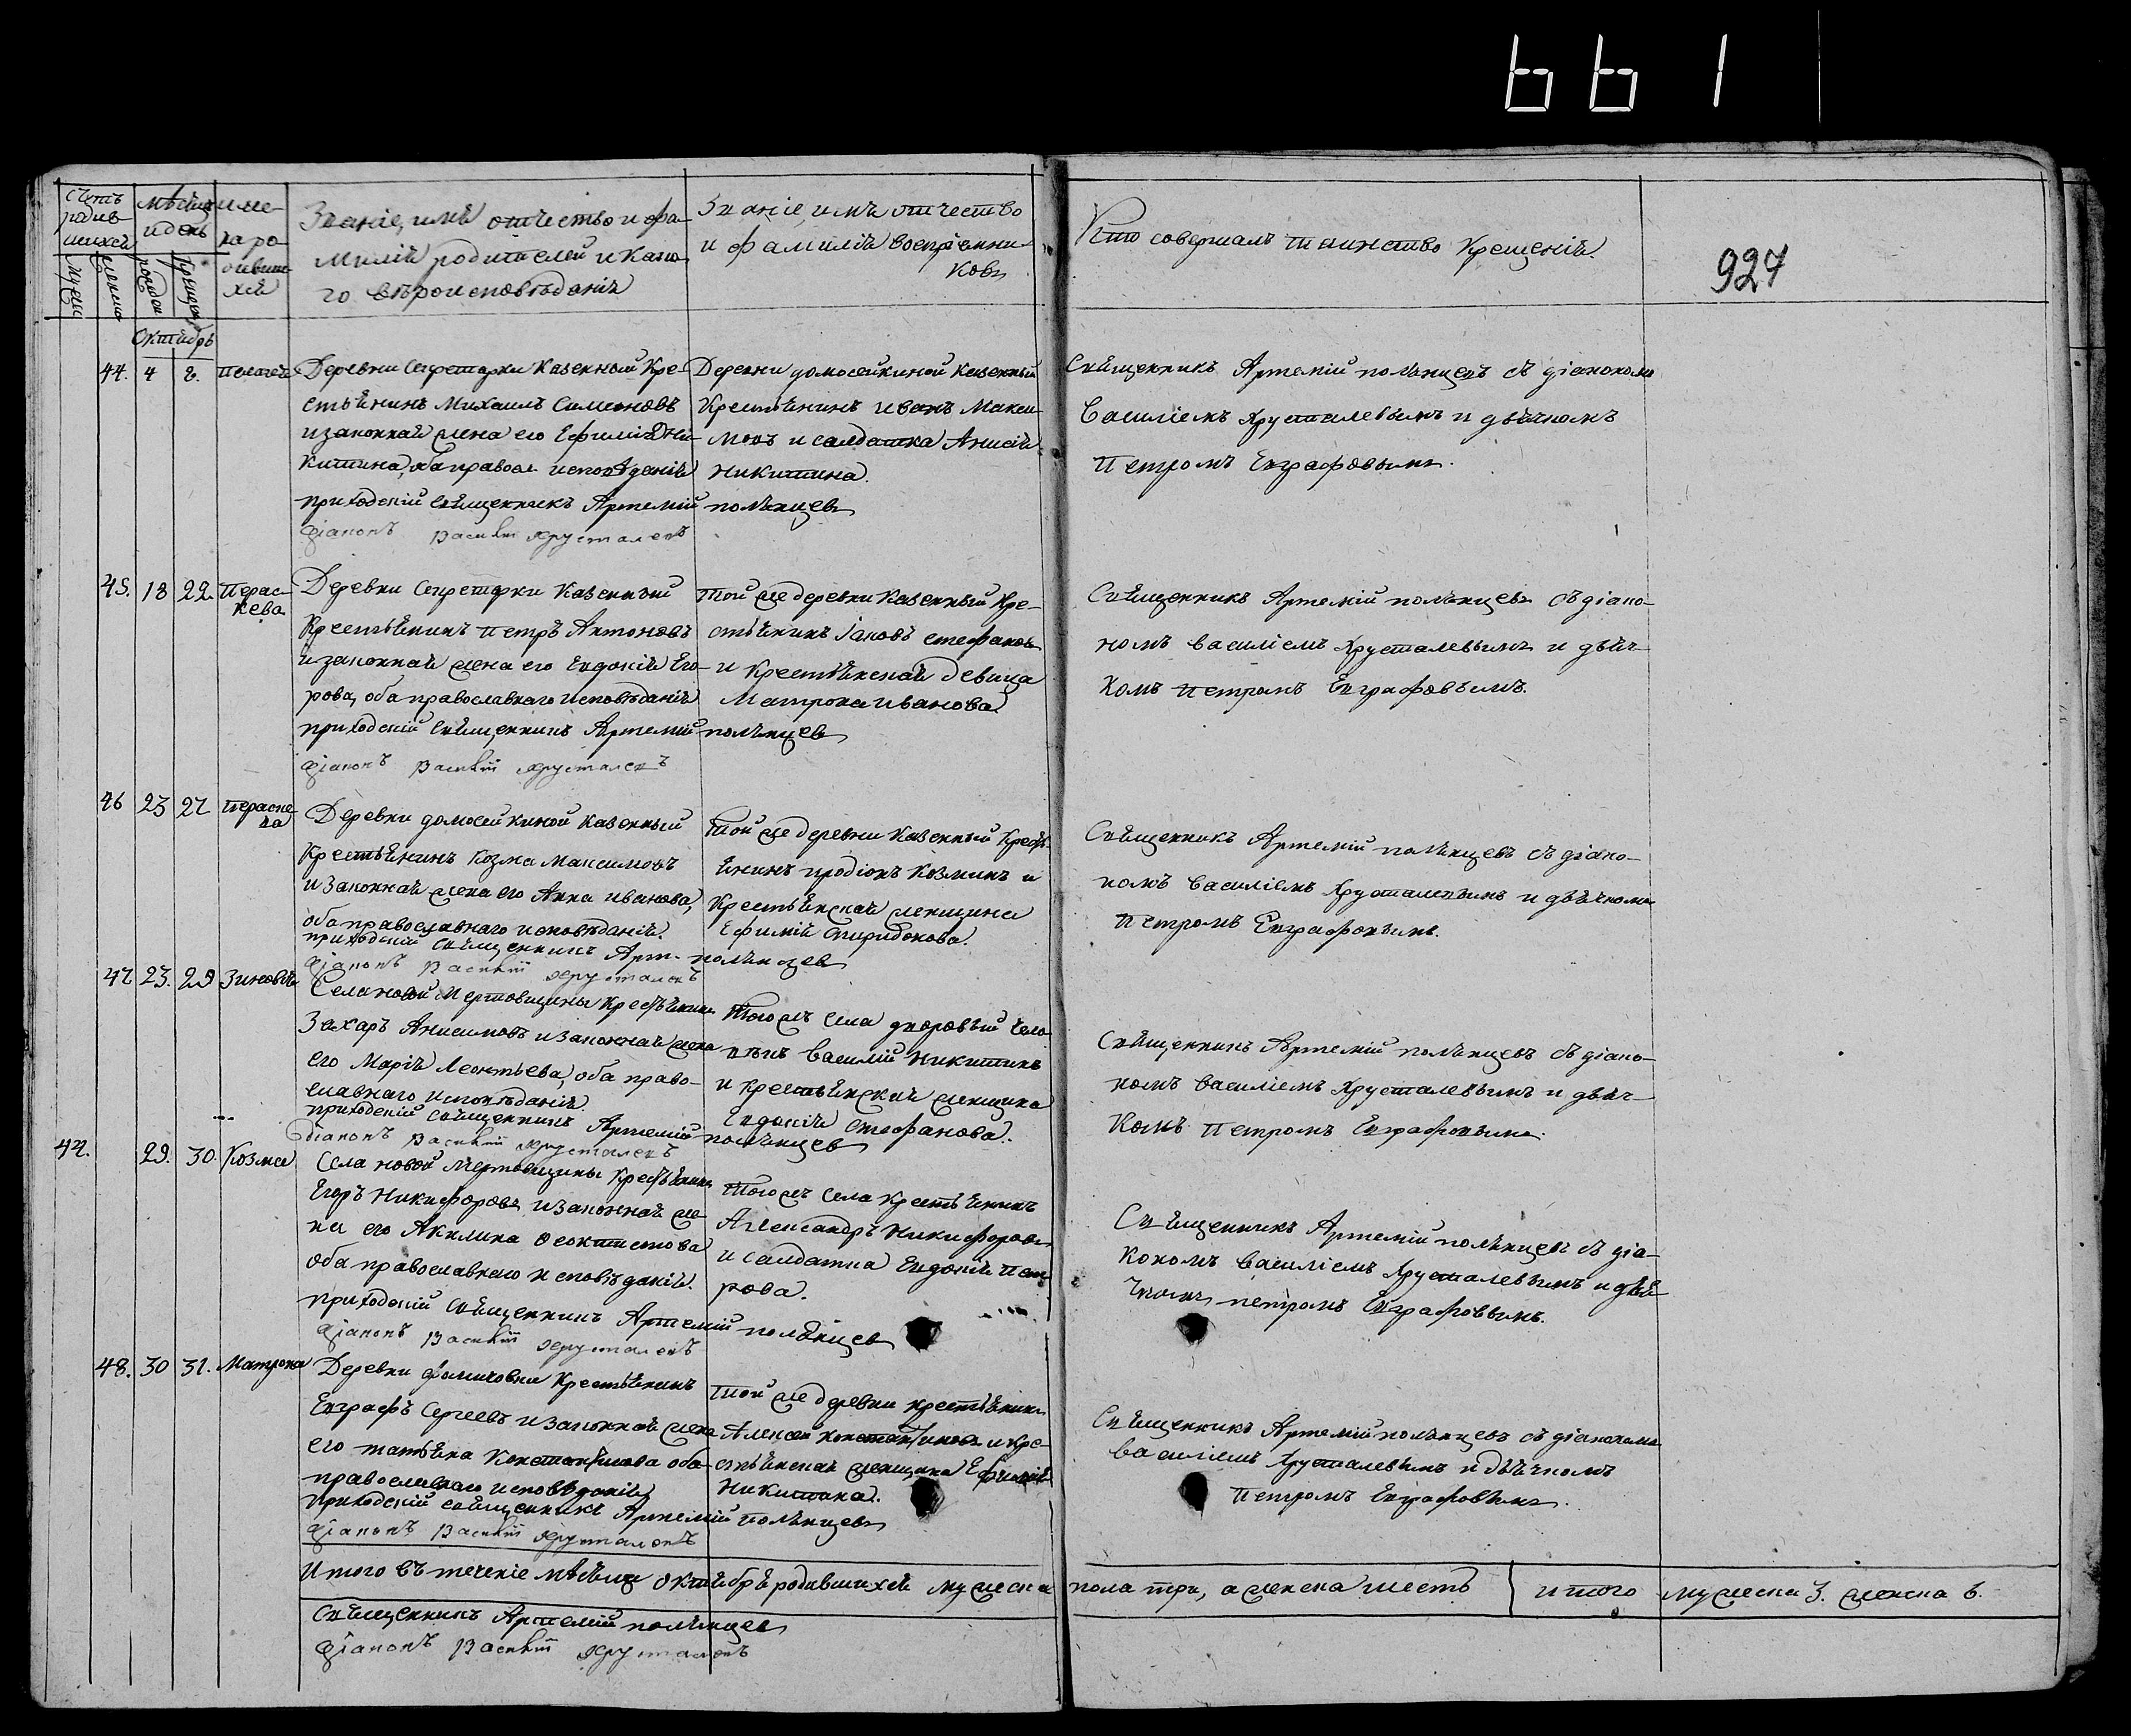 661
927
Счетъ родив- шихся
мѣсяцъ и день
име- на ро- дивши- хся
Званіе, имя отчество и фа- милія родителей и како- го вѣроисповѣданія
Званіе, имя отчество и фамилія воспріемни- ковъ
Кто совершалъ таинство Крещенія.
Мужес
женско
рожден
крещен
Октябрь
44. 4 8. Пелагея
Деревни Секретарки Казенный Кре-
стьянинъ Михаилъ Симеоновъ
и законная жена его Ефимія Ни-
китина, оба правосл исповѣданія
приходскій священникъ Артемій полянцевъ
діаконъ Василій Хрусталевъ
Деревни домосейкиной казенный
Крестьянинъ Иванъ Макси-
мовъ и салдатка Анисія
Никитина.
Священникъ Артемій полянцевъ съ діакономъ
Василіемъ Хрусталевымъ и дьячкомъ
Петромъ Евграфовымъ.
45. 18 22. Перас- кева
Деревни Секретарки Казенный
Крестьянинъ Петръ Антоновъ
и законная жена его Евдокія Его-
рова, оба православнаго исповѣданія
приходскій священникъ Артемій полянцевъ
діаконъ Василій Хрусталевъ
Той же деревни Казенный Кре-
стьянинъ Іаковъ Стефановъ
и Крестьянская девица
Матрона Иванова
Священникъ Артемій полянцевъ съ діако-
номъ Василіемъ Хрусталевымъ и дьяч-
комъ Петромъ Евграфовымъ.
46 23 27 Параске- ва
Деревни домосейкиной казенный
Крестьянинъ Козма Максимовъ
и законная жена его Анна Иванова,
оба православнаго исповѣданія.
приходскій священникъ Арт- полянцевъ
діаконъ Василій Хрусталевъ
Той же деревни Казенный Кресть-
янинъ Продіонъ Козминъ и
Крестьянская женщина
Ефимія Спиридонова.
Священникъ Артемій полянцевъ съ діако-
номъ Василіемъ Хрусталевымъ и дьячкомъ
Петромъ Евграфовымъ.
47 23. 29 Зиновія
Села новой Мертовщины Крестьянинъ
Захаръ Анисимовъ и законная жена
его Марія Леонтьева, оба право-
славнаго исповѣданія.
приходскій священникъ Артемій полянцевъ
діаконъ Василій Хрусталевъ
Тогожъ села дворовый чело-
вѣкъ Василій Никитинъ
и крестьянская женщина
Евдокія Стефанова.
Священникъ Артемій полянцевъ съ діако-
номъ Василіемъ Хрусталевымъ и дьяч-
комъ Петромъ Евграфовымъ.
44. 29. 30. Козма
Села новой Мертовщины Крестьянинъ
Егоръ Никифоровъ и законная же-
на его Акилина Феоктистова
оба православнаго исповѣданія.
приходскій священникъ Артемій полянцевъ
діаконъ Василій Хрусталевъ
Тогожъ села крестьянинъ
Александръ Никифоровъ
и салдатка Евдокія Пет-
рова.
Священникъ Артемій полянцевъ съ діа-
кономъ Василіемъ Хрусталевымъ и дья-
чкомъ петромъ Евграфовымъ.
48. 30 31. Матрона
Деревни Фомичовки Крестьянинъ
Евграфъ Сергеевъ и законная жена
его татьяна Константинова оба
православнаго исповѣданія
приходскій священникъ Артемій полянцевъ
діаконъ Василій Хрусталевъ
Той же деревни крестьянинъ
Алексей Константиновъ и кре-
стьянская женщина Ефимія
Никитина.
Священникъ Артемій полянцевъ съ діакономъ
Василіемъ Хрусталевымъ и дьячкомъ
Петромъ Евграфовымъ.
Итого въ теченіе мѣсяца октября родившихся мужеска пола три, а женска шесть итого мужеска 3. женска 6.
Священникъ Артемій полянцевъ
діаконъ Василій Хрусталевъ